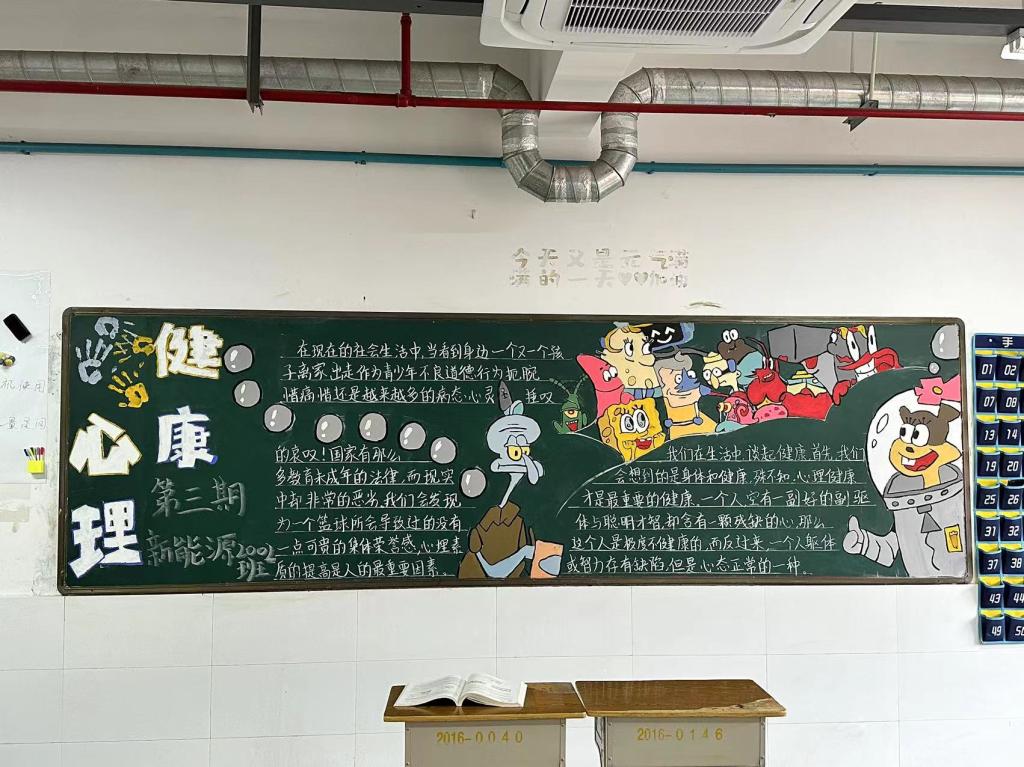 今天又是元气满
满的一天
健康
心理
第三期
新能源2002
班
在现在的社会生活中,当看到身边一个又一个孩
子离家出走作为青少年不良道德行为扼腕
惜痛惜还是越来越多的病态心灵
哀叹
的哀叹!国家有那么
多教育未成年的法律,而现实
中却非常的恶劣,我们会发现
为一个篮球所会导致过的没有
一点可贵的集体荣誉感,心理素
质的提高是人的最重要因素。
我们在生活中,谈起健康首先,我们
会想到的是身体和健康,殊不知,心理健康
才是最重要的健康,一个人空有一副好的副躯
体与聪明才智,却会有一颗残缺的心,那么
这个人是极度不健康的,而反过来,一个人躯体
或智力存有缺陷,但是心态正常的一种。
手
01 02
07 08
13 14
19 20
25 26
31 32
37 38
43 44
49 50
机使用
2016-0040
2016-0146